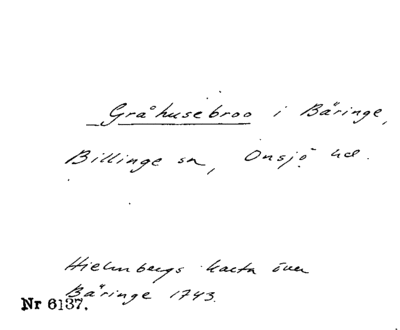 Gråhusebroo i Bäringe,
Billinge sn, Onsjö hd.
Hielmbergs karta över
Bäringe 1743.
Nr 6137.